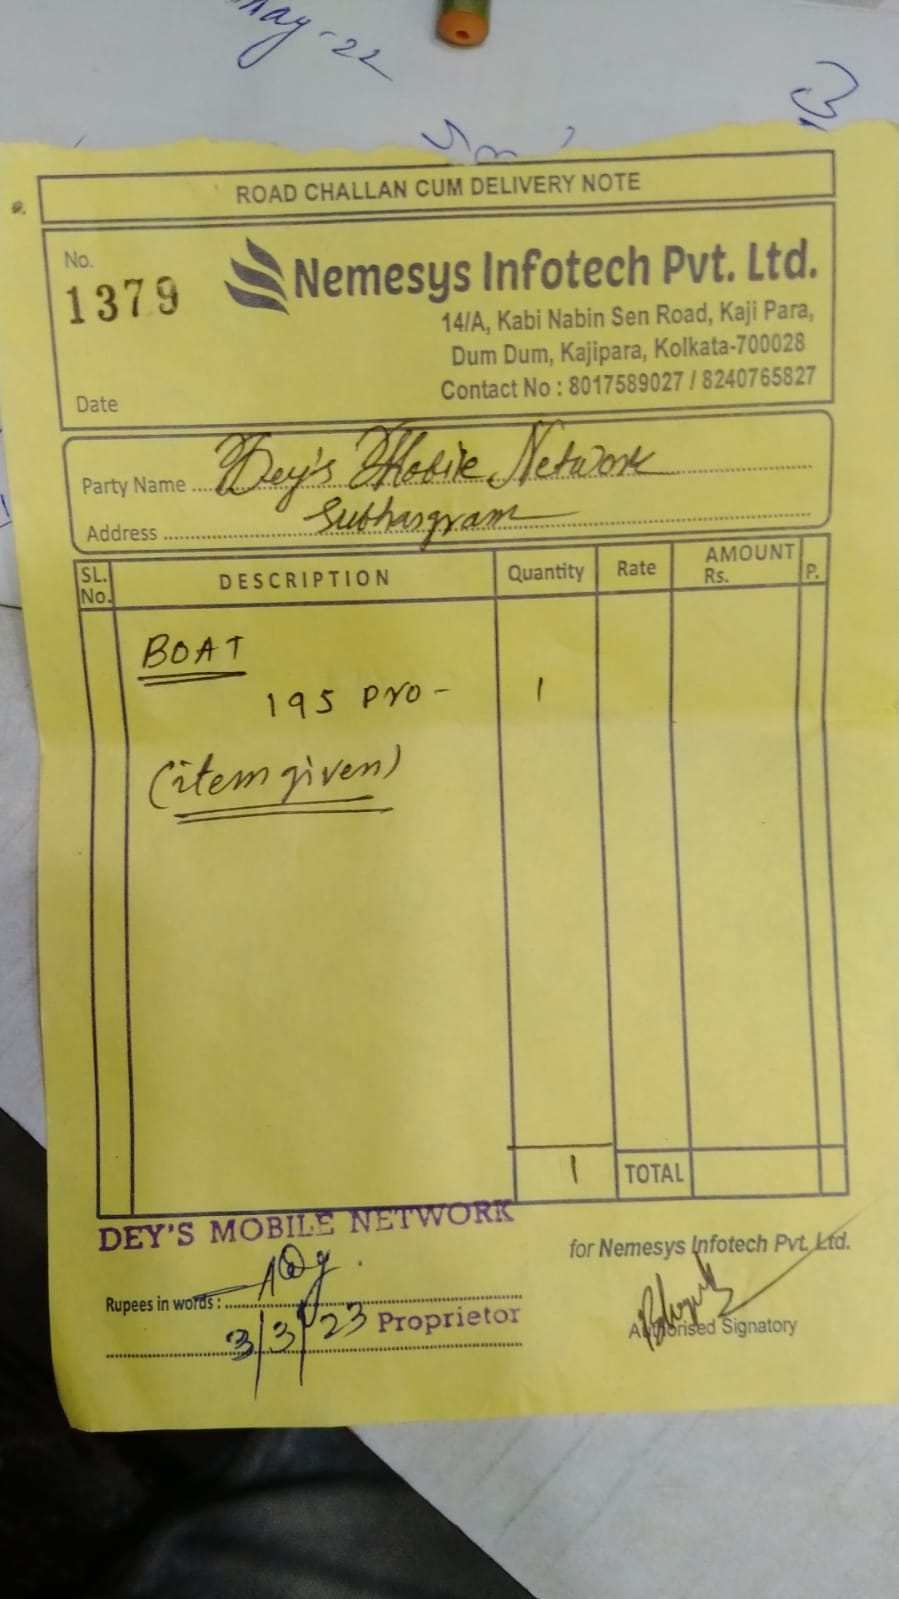 May-22
ROAD CHALLAN CUM DELIVERY NOTE
No.
1379
Nemesys Infotech Pvt. Ltd.
14/A, Kabi Nabin Sen Road, Kaji Para,
Dum Dum, Kajipara, Kolkata-700028
Contact No : 8017589027 / 8240765827
Date
Party Name Dey's Mobile Network
Address Subhasgram
SL. No. DESCRIPTION Quantity Rate AMOUNT Rs. P.
BOAT
195 PRO - 1
(item given)
1 TOTAL
DEY'S MOBILE NETWORK
for Nemesys Infotech Pvt. Ltd.
Rupees in words :
3/3/23 Proprietor
Authorised Signatory